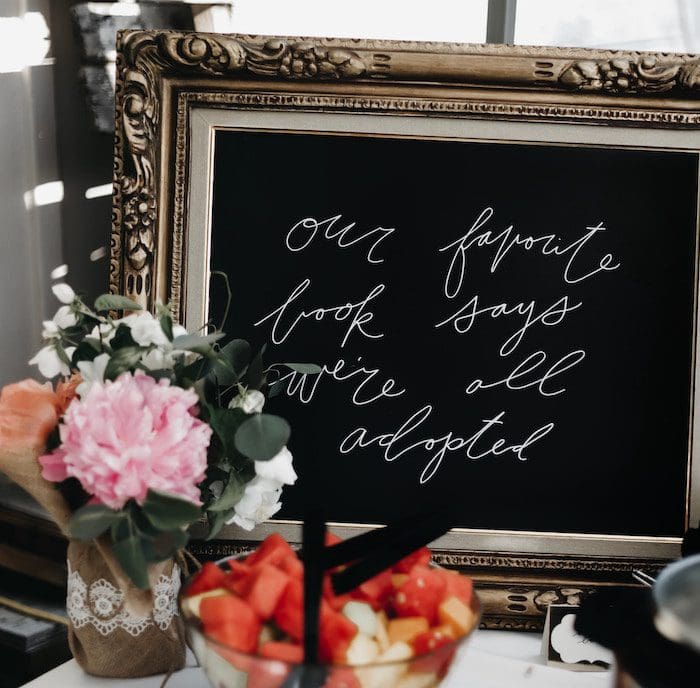 our favorite
book says
we're all
adopted